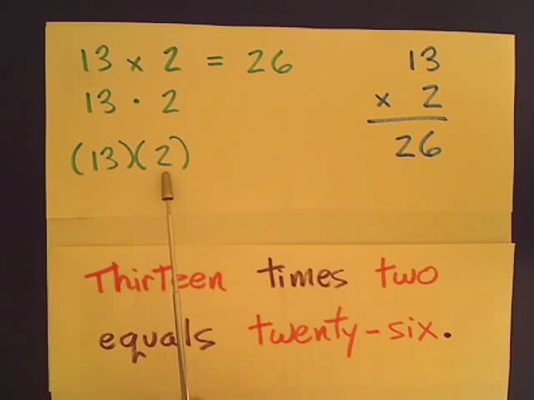 13 x 2 = 26
13 · 2
(13)(2)
13
x 2
26
Thirteen times two
equals twenty-six.